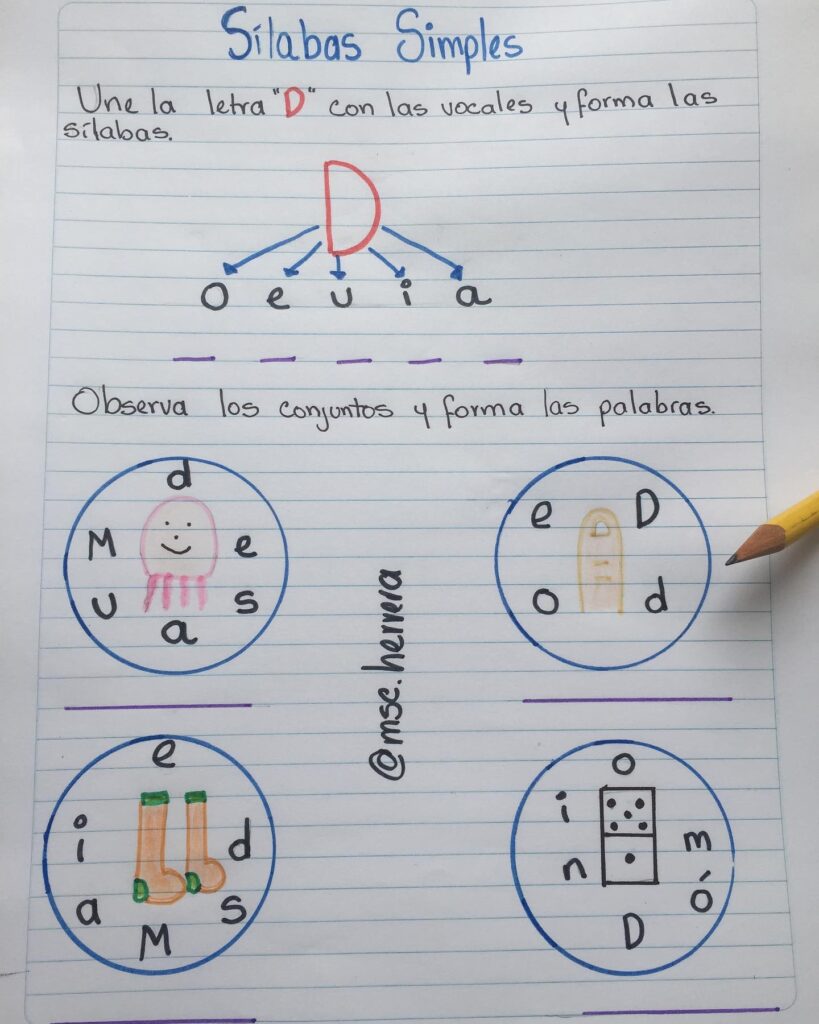 Sílabas Simples
Une la letra "D" con las vocales y forma las
sílabas.
D
o e u i a
Observa los conjuntos y forma las palabras.
d
M e
u s
a
e D
o d
@msc.herrera
e
i d
a s
M
o
i m
n ó
D